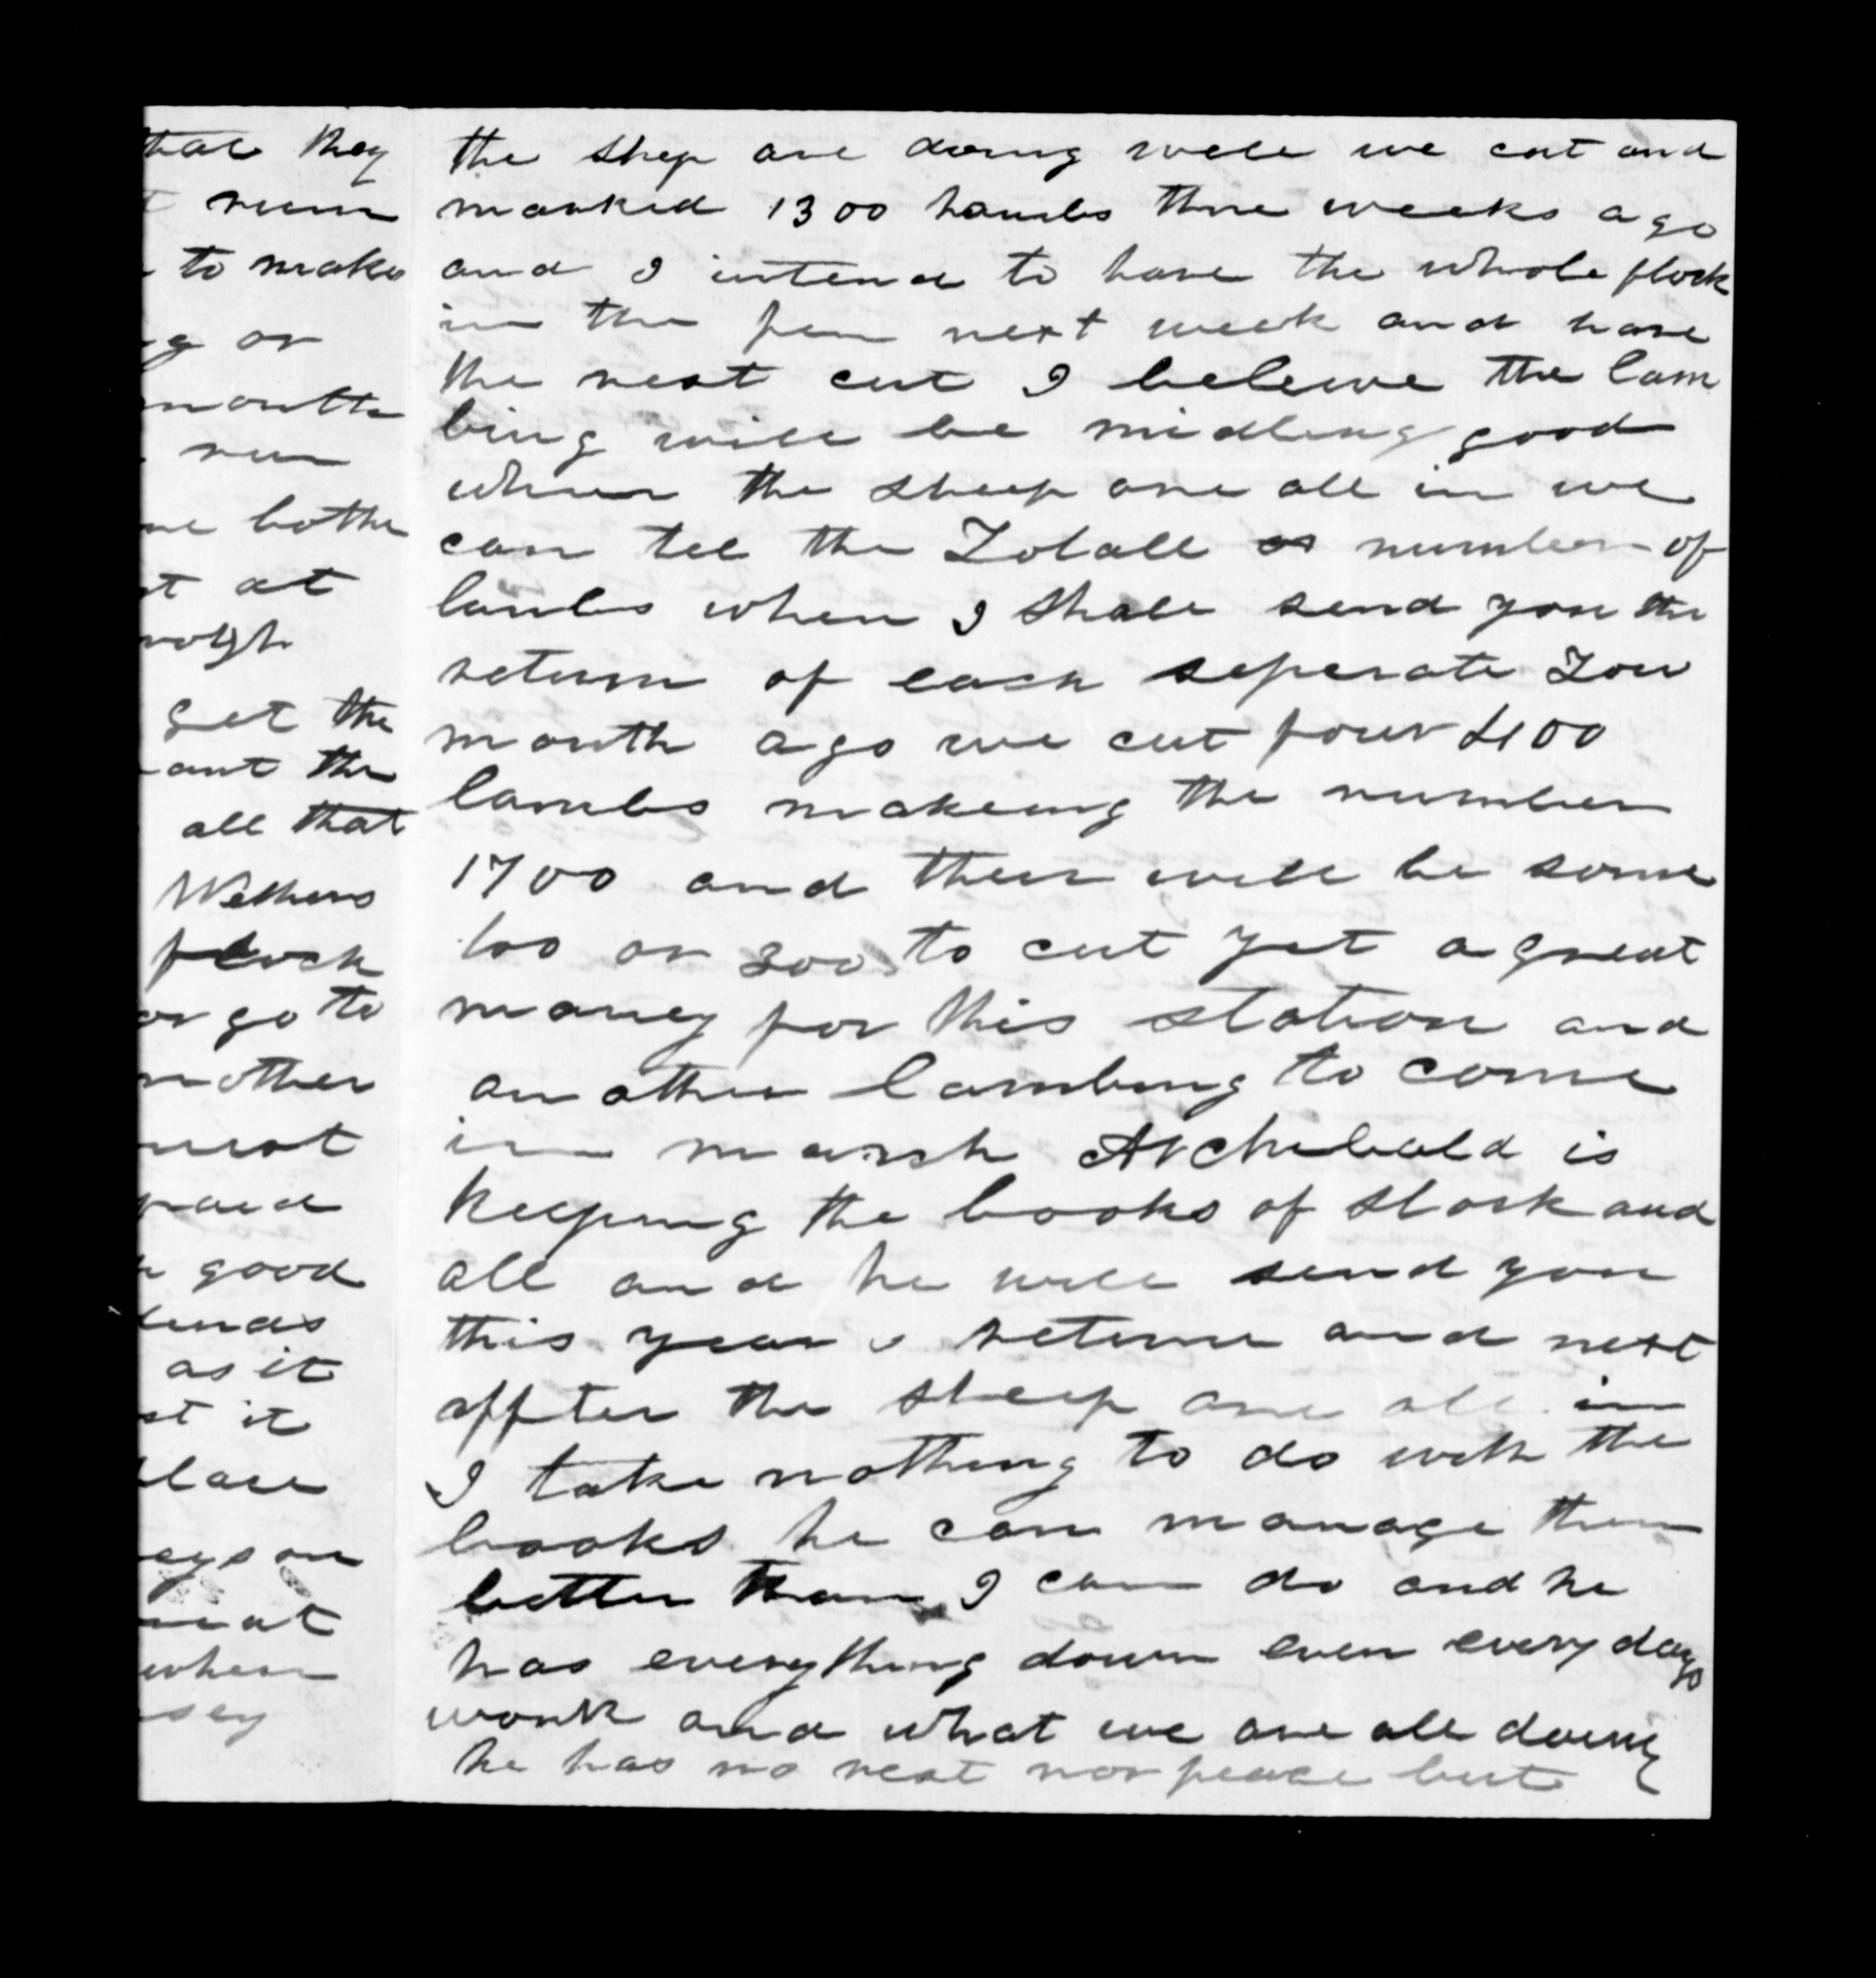 that they
run
to make
or
month
run
me bothe
at
get the
ant the
all that
Wethers
flock
or go to
mother
most
paid
good
as it
it
when
the shep are doing well we cut and
marked 1300 lambs thre weeks ago
and I intend to have the whole flock
in the pen next week and have
the rest cut I beleive the lam
bing will be midling good
when the sheep are all in we
can tel the Totall number of
lambs when I shall send you the
return of each seperate Tow
month ago we cut four 400
lambs makeing the number
1700 and their will be some
100 or 200 to cut yet a great
maney for this station and
another lambing to come
in marsh Archibald is
keeping the books of stock and
all and he will send you
this years returne and next
affter the sheep are all in
I take nothing to do with the
books he can manage them
better than I can do and he
has everything down even every days
work and what we are all doeing
he has no rest nor peace but